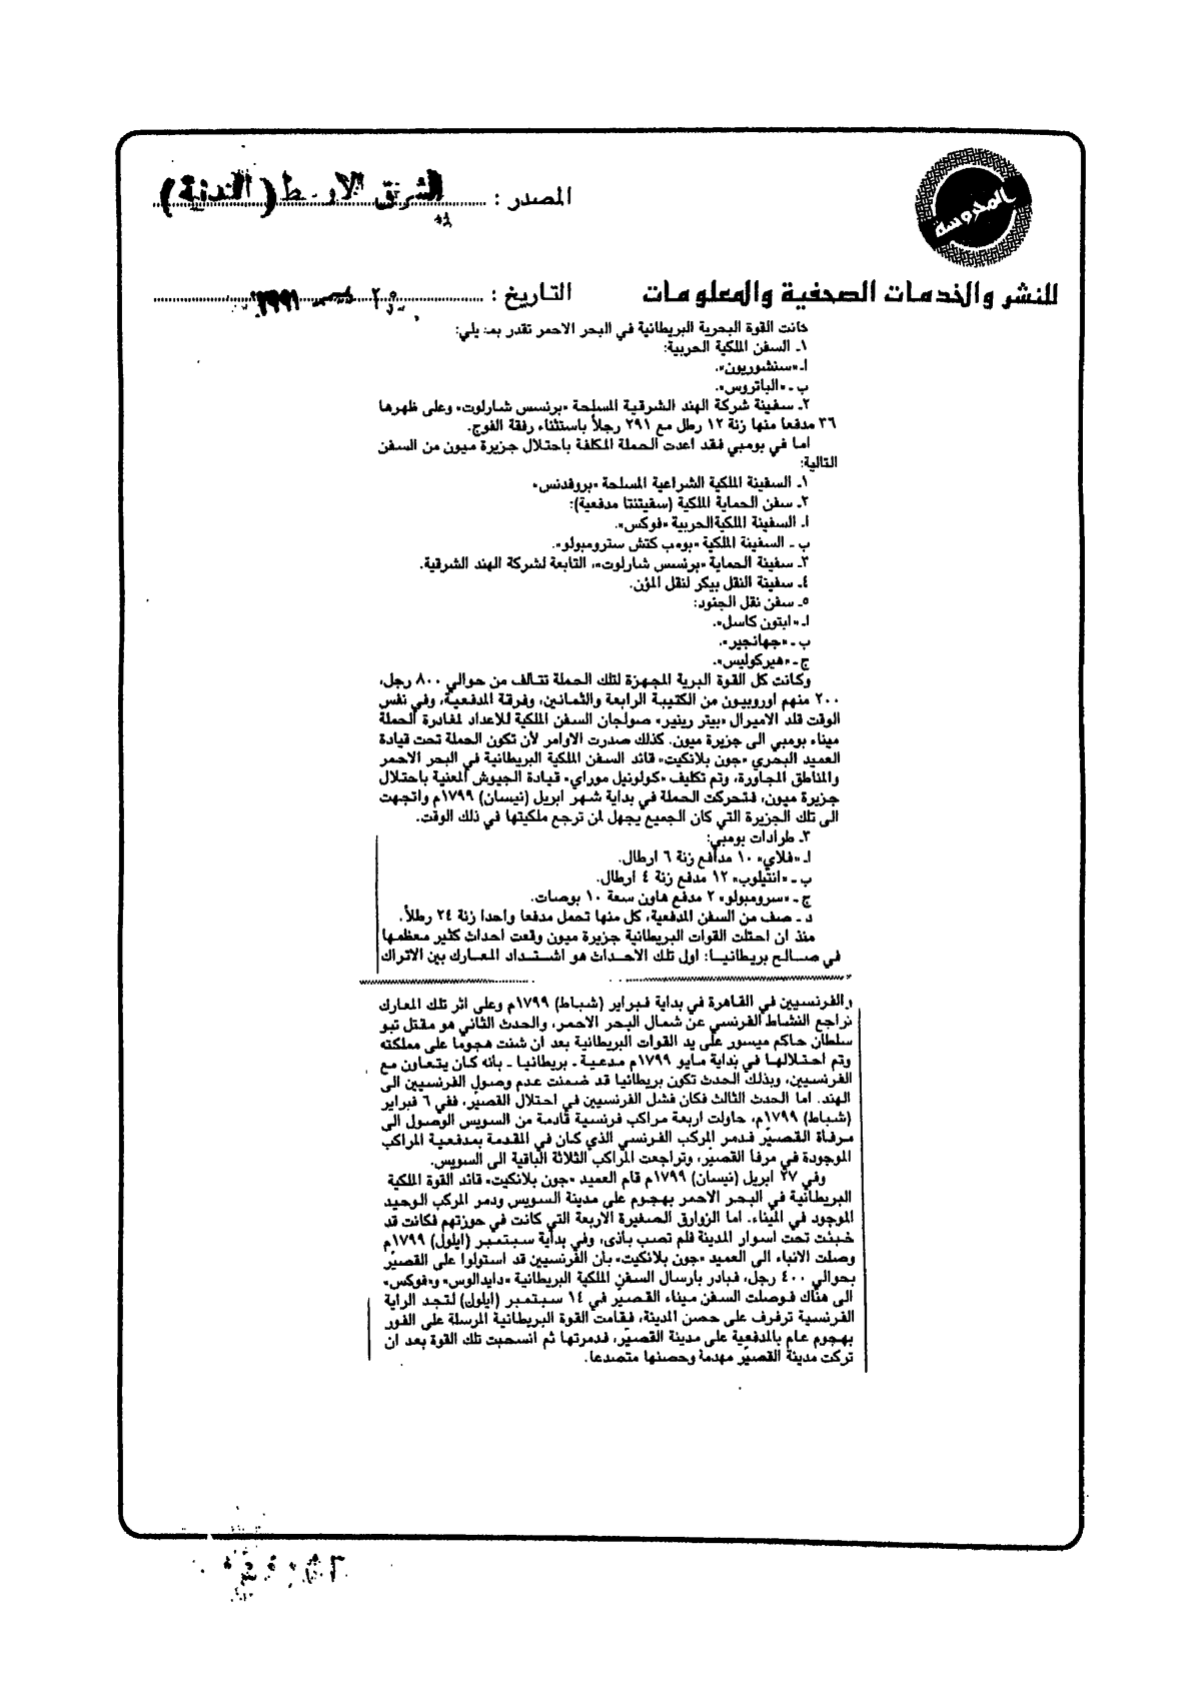 المحروسة
المصدر : الشرق الاوسط (اللندنية)
للنشر والخدمات الصحفية والمعلومات
التاريخ : ٢٥
كانت القوة البحرية البريطانية في البحر الاحمر تقدر بما يلي:
١ـ السفن الملكية الحربية:
ا ـ «سنشوريون».
ب ـ «الباتروس».
٢ـ سفينة شركة الهند الشرقية المسلحة «برنسس شارلوت» وعلى ظهرها
٣٦ مدفعا منها زنة ١٢ رطل مع ٢٩١ رجلاً باستثناء رفقة الفوج.
اما في بومبي فقد اعدت الحملة المكلفة باحتلال جزيرة ميون من السفن
التالية:
١ـ السفينة الملكية الشراعية المسلحة «بروفدنس»
٢ـ سفن الحماية الملكية (سفيتنتا مدفعية):
ا ـ السفينة الملكيةالحربية «فوكس».
ب ـ السفينة الملكية «بومب كتش سترومبولو».
٣ـ سفينة الحماية «برنسس شارلوت»، التابعة لشركة الهند الشرقية.
٤ـ سفينة النقل بيكر لنقل المؤن.
٥ـ سفن نقل الجنود:
ا ـ «ابتون كاسل».
ب ـ «جهانجير».
ج ـ «هيركوليس».
وكانت كل القوة البرية المجهزة لتلك الحملة تتالف من حوالي ٨٠٠ رجل،
٢٠٠ منهم اوروبيون من الكتيبة الرابعة والثمانين، وفرقة المدفعية، وفي نفس
الوقت قلد الاميرال «بيتر رينير» صولجان السفن الملكية للاعداد لمغادرة الحملة
ميناء بومبي الى جزيرة ميون. كذلك صدرت الاوامر لأن تكون الحملة تحت قيادة
العميد البحري «جون بلانكيت» قائد السفن الملكية البريطانية في البحر الاحمر
والمناطق المجاورة، وتم تكليف «كولونيل موراي» قيادة الجيوش المعنية باحتلال
جزيرة ميون، فتحركت الحملة في بداية شهر ابريل (نيسان) ١٧٩٩م واتجهت
الى تلك الجزيرة التي كان الجميع يجهل لمن ترجع ملكيتها في ذلك الوقت.
٣ـ طرادات بومبي:
ا ـ «فلاي» ١٠ مدافع زنة ٦ ارطال.
ب ـ «انتيلوب» ١٢ مدفع زنة ٤ ارطال.
ج ـ «سرومبولو» ٢ مدفع هاون سعة ١٠ بوصات.
د ـ صف من السفن المدفعية، كل منها تحمل مدفعا واحدا زنة ٢٤ رطلاً.
منذ ان احتلت القوات البريطانية جزيرة ميون وقعت احداث كثير معظمها
في صالح بريطانيا: اول تلك الاحداث هو اشتداد المعارك بين الاتراك
والفرنسيين في القاهرة في بداية فبراير (شباط) ١٧٩٩م وعلى اثر تلك المعارك
تراجع النشاط الفرنسي عن شمال البحر الاحمر، والحدث الثاني هو مقتل تبو
سلطان حاكم ميسور على يد القوات البريطانية بعد ان شنت هجوما على مملكته
وتم احتلالها في بداية مايو ١٧٩٩م مدعية ـ بريطانيا ـ بانه كان يتعاون مع
الفرنسيين، وبذلك الحدث تكون بريطانيا قد ضمنت عدم وصول الفرنسيين الى
الهند. اما الحدث الثالث فكان فشل الفرنسيين في احتلال القصيّر، ففي ٦ فبراير
(شباط) ١٧٩٩م، حاولت اربعة مراكب فرنسية قادمة من السويس الوصول الى
مرفأة القصيّر فدمر المركب الفرنسي الذي كان في المقدمة بمدفعية المراكب
الموجودة في مرفا القصيّر، وتراجعت المراكب الثلاثة الباقية الى السويس.
وفي ٢٧ ابريل (نيسان) ١٧٩٩م قام العميد «جون بلانكيت» قائد القوة الملكية
البريطانية في البحر الاحمر بهجوم على مدينة السويس ودمر المركب الوحيد
الموجود في الميناء. اما الزوارق الصغيرة الاربعة التي كانت في حوزتهم فكانت قد
خبئت تحت اسوار المدينة فلم تصب باذى، وفي بداية سبتمبر (ايلول) ١٧٩٩م
وصلت الانباء الى العميد «جون بلانكيت» بان الفرنسيين قد استولوا على القصيّر
بحوالي ٤٠٠ رجل، فبادر بارسال السفن الملكية البريطانية «دايدالوس» و«فوكس»
الى هناك فوصلت السفن ميناء القصيّر في ١٤ سبتمبر (ايلول) لتجد الراية
الفرنسية ترفرف على حصن المدينة، فقامت القوة البريطانية المرسلة على الفور
بهجوم عام بالمدفعية على مدينة القصيّر، فدمرتها ثم انسحبت تلك القوة بعد ان
تركت مدينة القصيّر مهدمة وحصنها متصدعا.